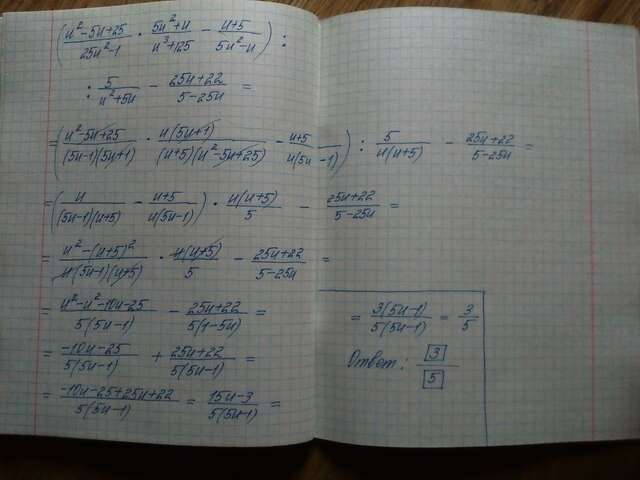 ( (u²-5u+25)/(25u²-1) · (5u²+u)/(u³+125) - (u+5)/(5u²-u) ) :
: 5/(u²+5u) - (25u+22)/(5-25u) =
= ( (u²-5u+25)/((5u-1)(5u+1)) · (u(5u+1))/((u+5)(u²-5u+25)) - (u+5)/(u(5u-1)) ) : 5/(u(u+5)) - (25u+22)/(5-25u) =
= ( u/((5u-1)(u+5)) - (u+5)/(u(5u-1)) ) · (u(u+5))/5 - (25u+22)/(5-25u) =
= (u²-(u+5)²)/(u(5u-1)(u+5)) · (u(u+5))/5 - (25u+22)/(5-25u) =
= (u²-u²-10u-25)/(5(5u-1)) - (25u+22)/(5(1-5u)) =
= (-10u-25)/(5(5u-1)) + (25u+22)/(5(5u-1)) =
= (-10u-25+25u+22)/(5(5u-1)) = (15u-3)/(5(5u-1)) =
= (3(5u-1))/(5(5u-1)) = 3/5
Ответ: 3/5